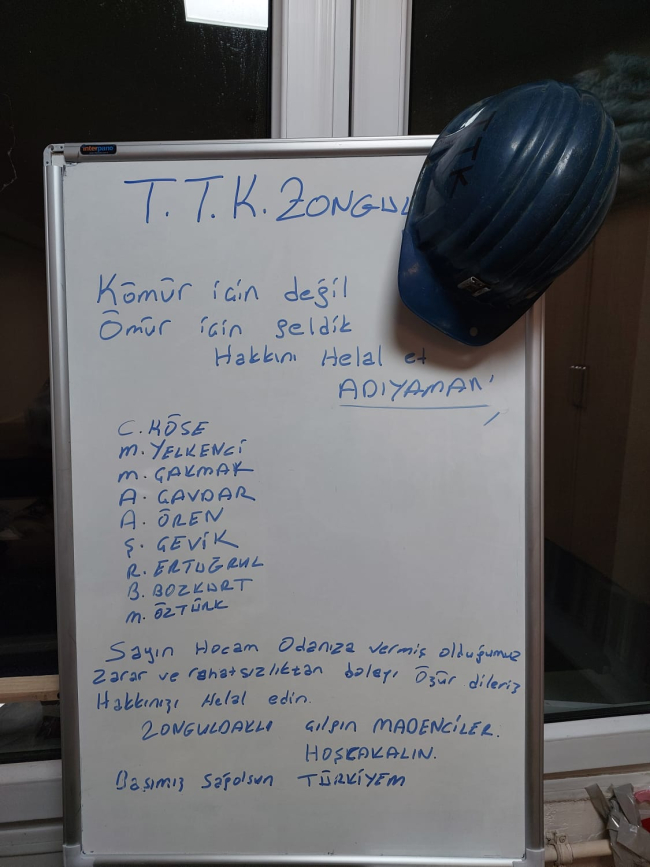 interpano
T.T.K. ZONGUL
TTK
Kömür için değil
Ömür için geldik
Hakkını Helal et
ADIYAMAN'
C. KÖSE
M. YELKENCİ
M. ÇAKMAK
A. ÇAVDAR
A. ÖREN
Ş. ÇEVİK
R. ERTUĞRUL
B. BOZKURT
M. ÖZTÜRK
Sayın Hocam Odanıza vermiş olduğumuz
Zarar ve rahatsızlıktan dolayı Özür dileriz
Hakkınızı Helal edin.
ZONGULDAKLI çılgın MADENCİLER.
HOŞÇAKALIN.
Başımız Sağolsun TÜRKİYEM